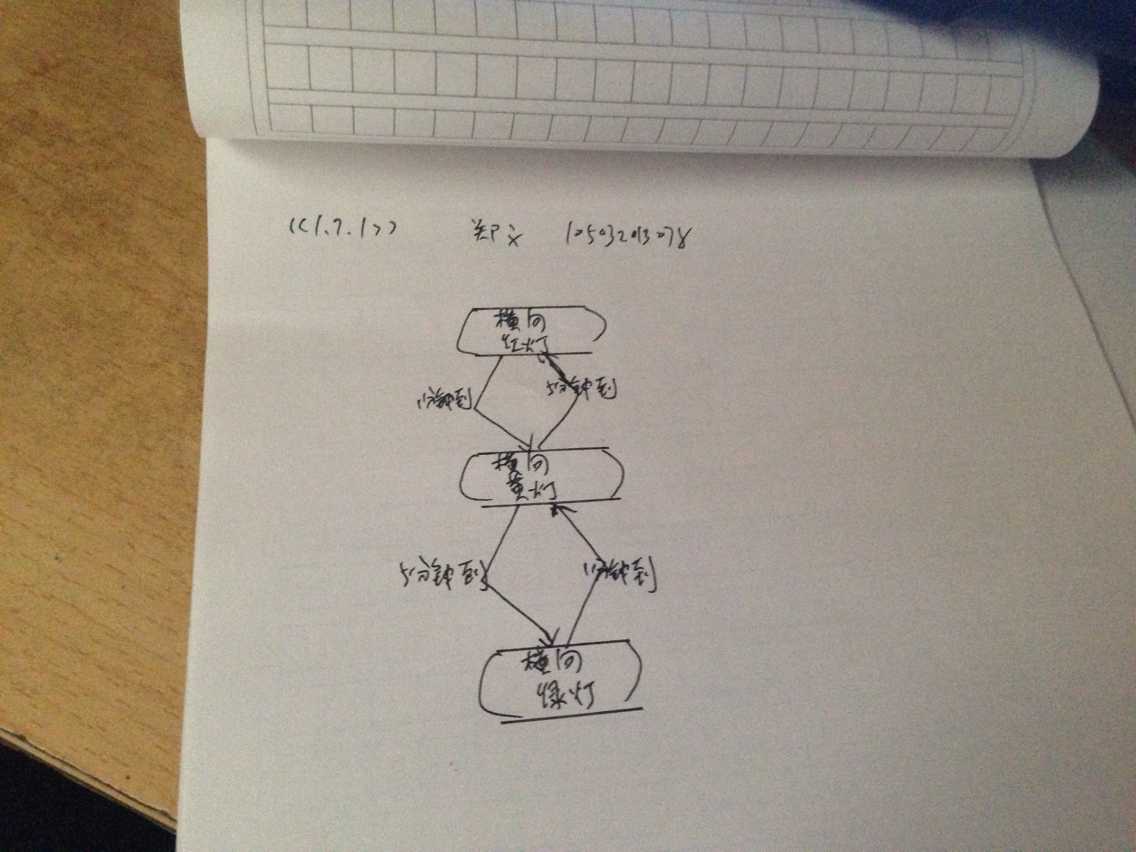 <<1.7.1>> 郑义 10503293078
横向
红灯
1分钟到 5分钟到
横向
黄灯
5分钟到 1分钟到
横向
绿灯